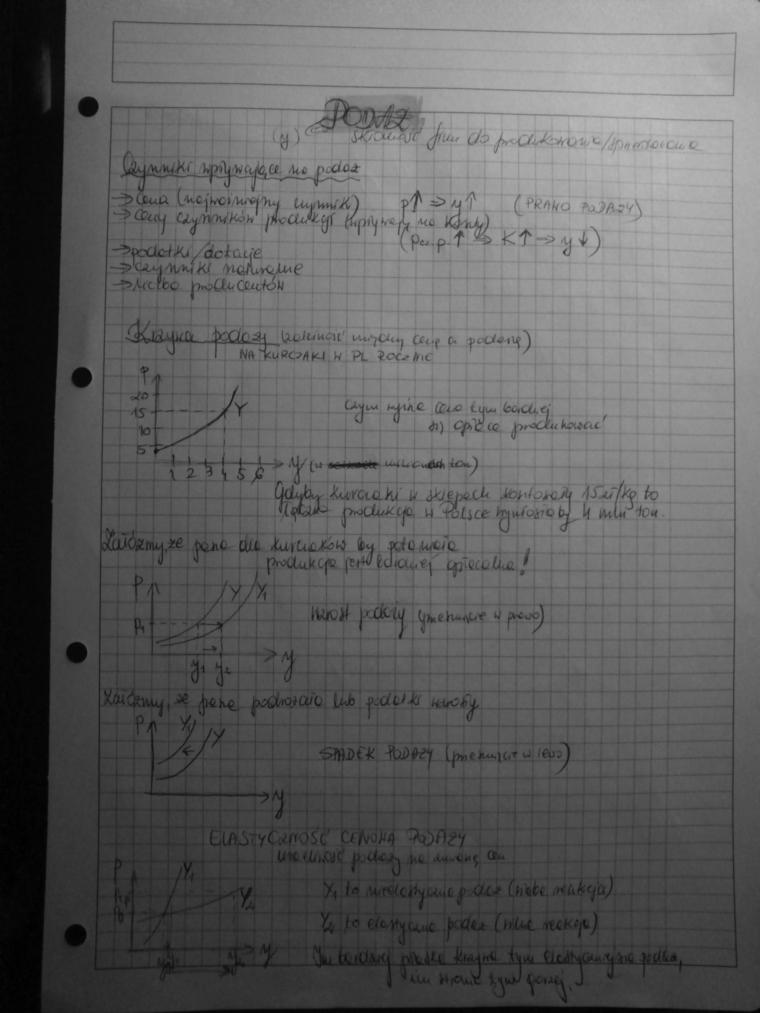 PODAŻ
(y) skłonność firm do produkowania/sprzedawania
Czynniki wpływające na podaż
→ Cena (najważniejszy czynnik) p↑ ⇒ y↑ (PRAWO PODAŻY)
→ Ceny czynników produkcji (wpływają na koszty)
(Pcz.p ↑ ⇒ K↑ ⇒ y↓)
→ podatki/dotacje
→ czynniki naturalne
→ liczba producentów
Krzywa podaży (zależność między ceną a podażą)
NA KURCZAKI W PL ROCZNIE
P
20
15
10
5
Y
1 2 3 4 5 6 y (w milionach ton)
Czym wyższa cena tym bardziej
się opłaca produkować
Gdyby kurczaki w sklepach kosztowały 15zł/kg to
produkcja w Polsce wynosiłaby 4 mln ton.
Załóżmy, że pasza dla kurczaków by potaniała
produkcja jest bardziej opłacalna!
P Y Y1
P1
wzrost podaży (przesunięcie w prawo)
y1 y2 y
Załóżmy, że pasza podrożała lub podatki wzrosły
P Y1 Y
SPADEK PODAŻY (przesunięcie w lewo)
y
ELASTYCZNOŚĆ CENOWA PODAŻY
wrażliwość podaży na zmianę cen
P Y1
Y2
Y1 to nieelastyczna podaż (słaba reakcja)
Y2 to elastyczna podaż (silna reakcja)
y
Im bardziej płaska krzywa tym elastyczniejsza podaż,
im stroma tym